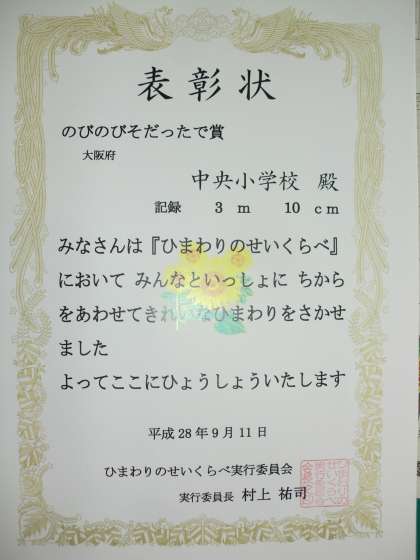 表彰状
のびのびそだったで賞
大阪府
中央小学校 殿
記録 3 m 10 cm
みなさんは『ひまわりのせいくらべ』
において みんなといっしょに ちから
をあわせてきれいなひまわりをさかせ
ました
よってここにひょうしょういたします
平成28年9月11日
ひまわりのせいくらべ実行委員会
実行委員長 村上 祐司